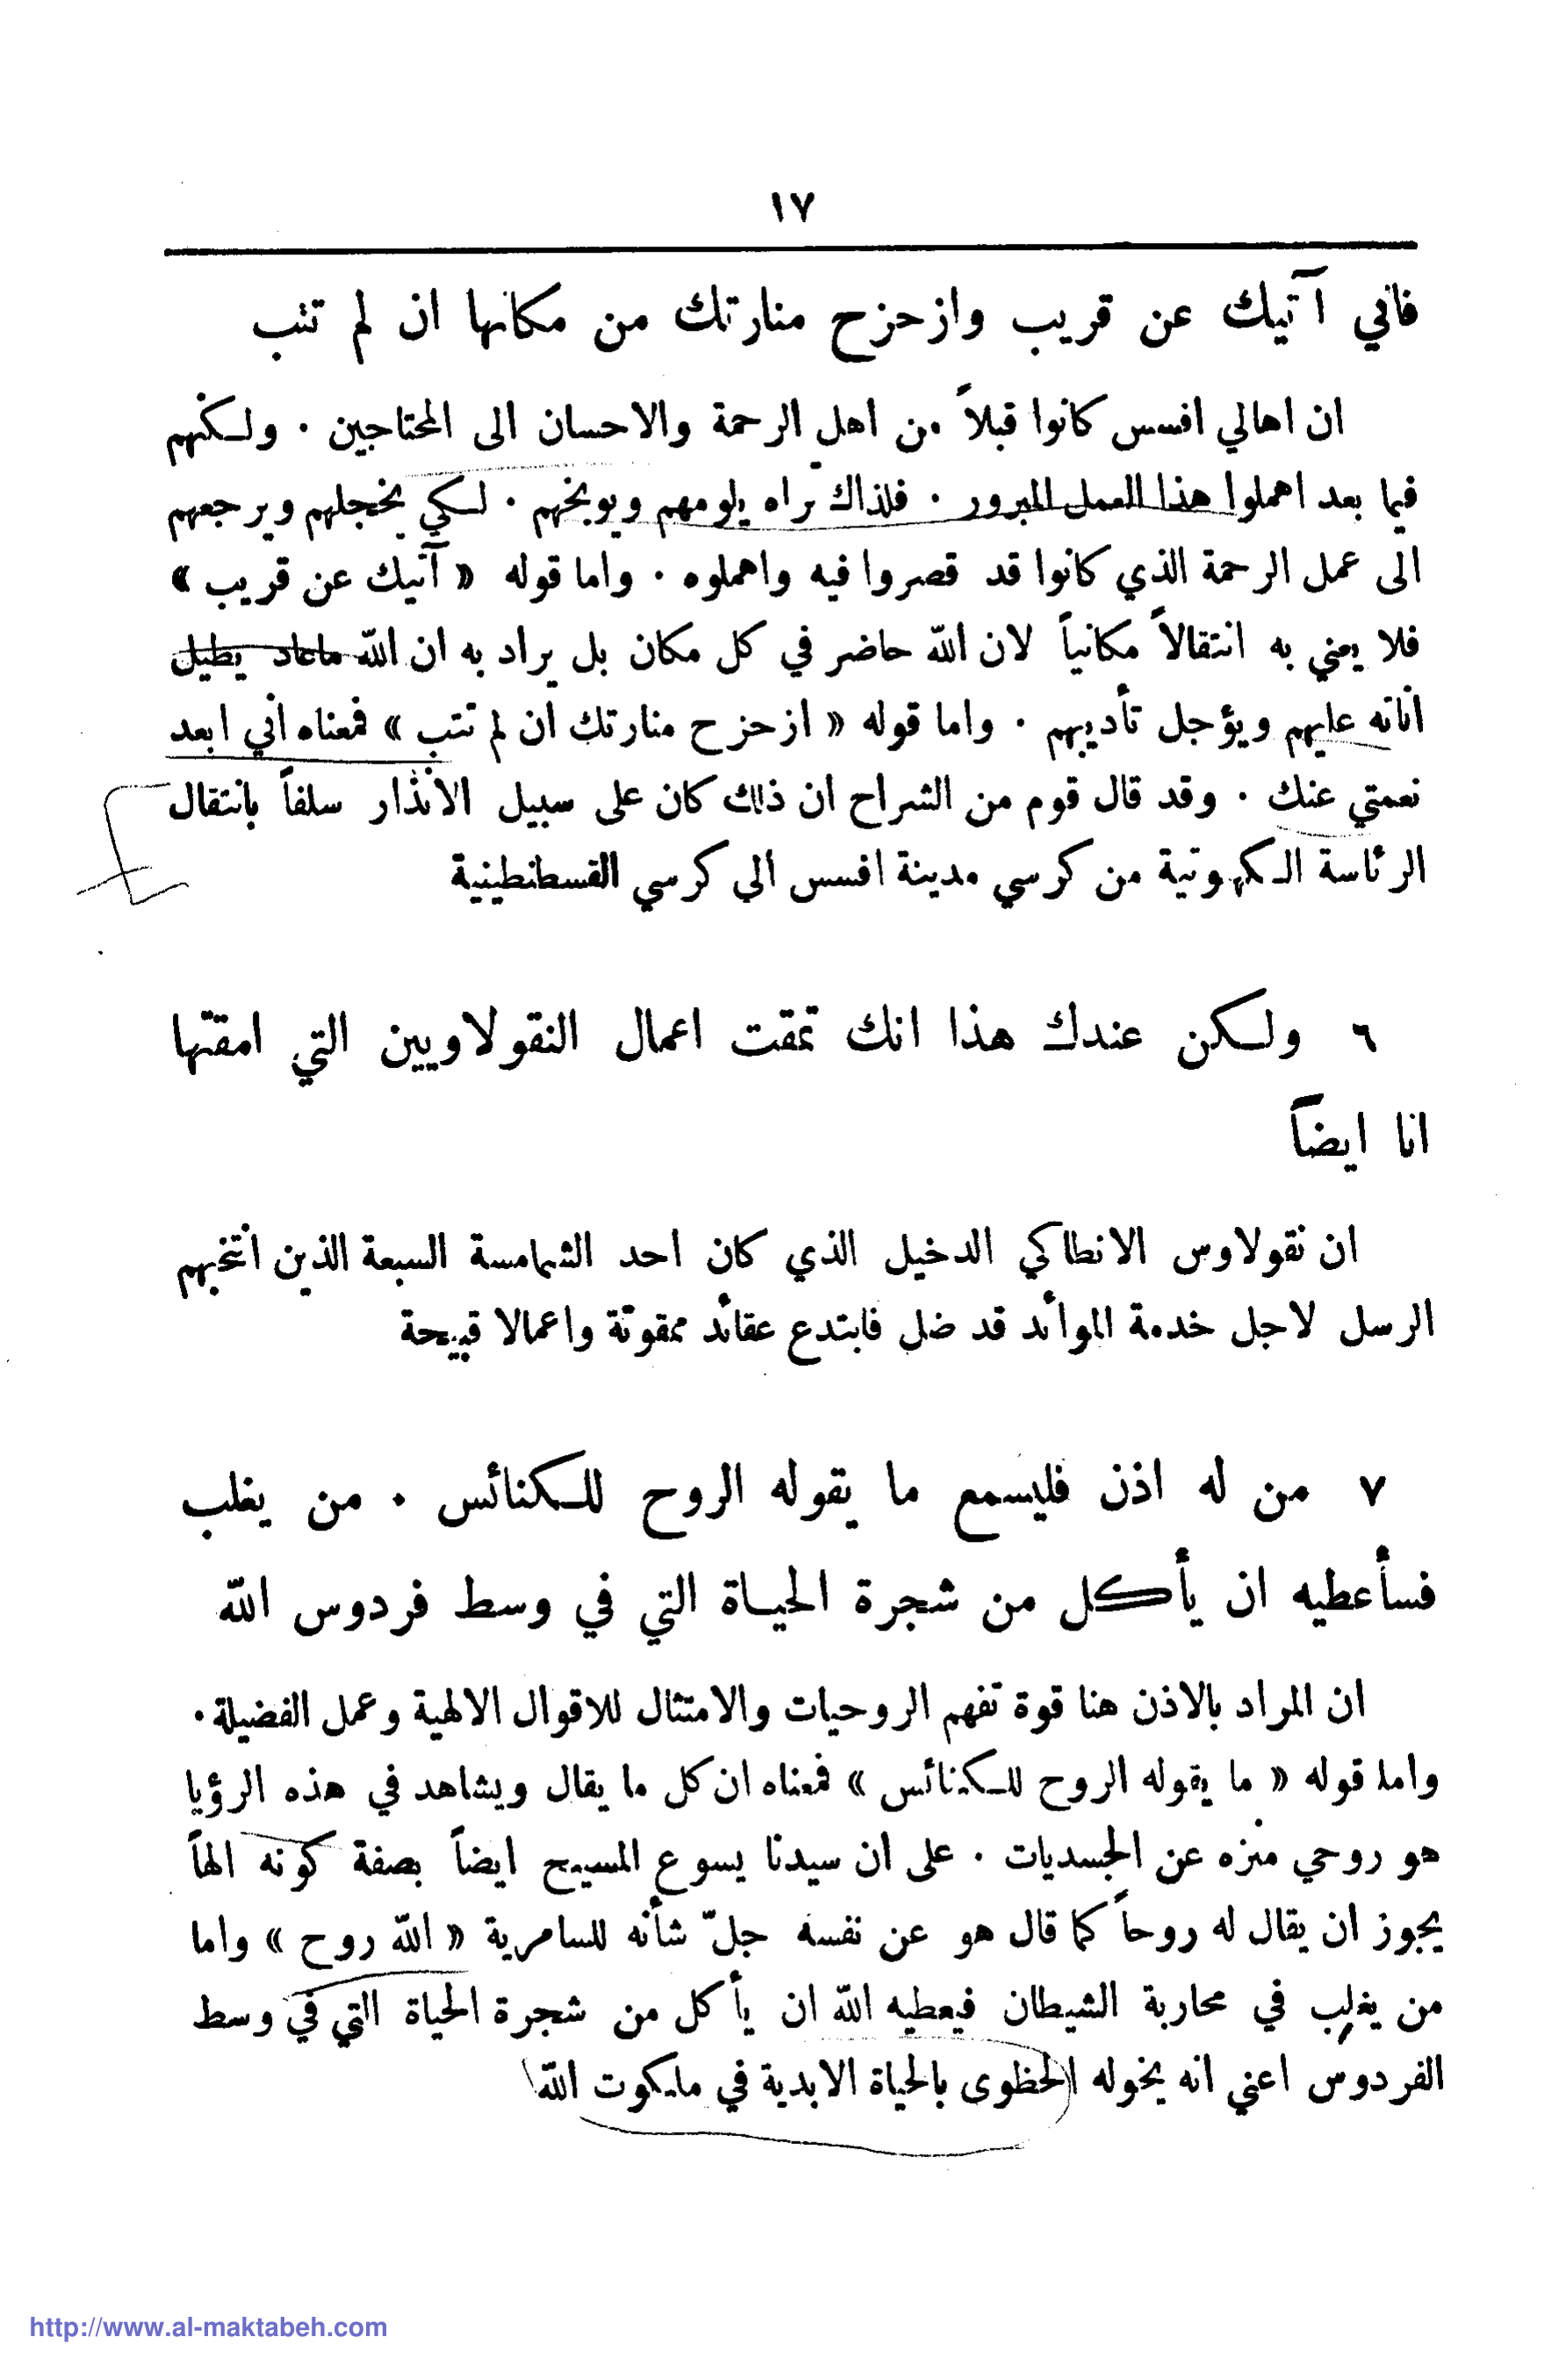 ١٧
فاني آتيك عن قريب وازحزح منارتك من مكانها ان لم تتب
ان اهالي افسس كانوا قبلاً من اهل الرحمة والاحسان الى المحتاجين . ولكنهم
فيما بعد اهملوا هذا العمل المبرور . فلذاك تراه يلومهم ويوبخهم . لكي يخجلهم ويرجعهم
الى عمل الرحمة الذي كانوا قد قصروا فيه واهملوه . واما قوله « آتيك عن قريب »
فلا يعني به انتقالاً مكانياً لان الله حاضر في كل مكان بل يراد به ان الله ماعاد يطيل
اناته عليهم ويؤجل تأديبهم . واما قوله « ازحزح منارتك ان لم تتب » فمعناه اني ابعد
نعمتي عنك . وقد قال قوم من الشراح ان ذلك كان على سبيل الانذار سلفاً بانتقال
الرئاسة الكهوتية من كرسي مدينة افسس الى كرسي القسطنطينية
٦ ولكن عندك هذا انك تمقت اعمال النقولاويين التي امقتها
انا ايضاً
ان نقولاوس الانطاكي الدخيل الذي كان احد الشمامسة السبعة الذين انتخبهم
الرسل لاجل خدمة الموائد قد ضل فابتدع عقائد ممقوتة واعمالا قبيحة
٧ من له اذن فليسمع ما يقوله الروح للكنائس . من يغلب
فسأعطيه ان يأكل من شجرة الحياة التي في وسط فردوس الله
ان المراد بالاذن هنا قوة تفهم الروحيات والامتثال للاقوال الالهية وعمل الفضيلة .
واما قوله « ما يقوله الروح للكنائس » فمعناه ان كل ما يقال ويشاهد في هذه الرؤيا
هو روحي منزه عن الجسديات . على ان سيدنا يسوع المسيح ايضاً بصفة كونه الهاً
يجوز ان يقال له روحاً كما قال هو عن نفسه جلّ شأنه للسامرية « الله روح » واما
من يغلب في محاربة الشيطان فيعطيه الله ان يأكل من شجرة الحياة التي في وسط
الفردوس اعني انه يخوله الحظوى بالحياة الابدية في ملكوت الله
http://www.al-maktabeh.com